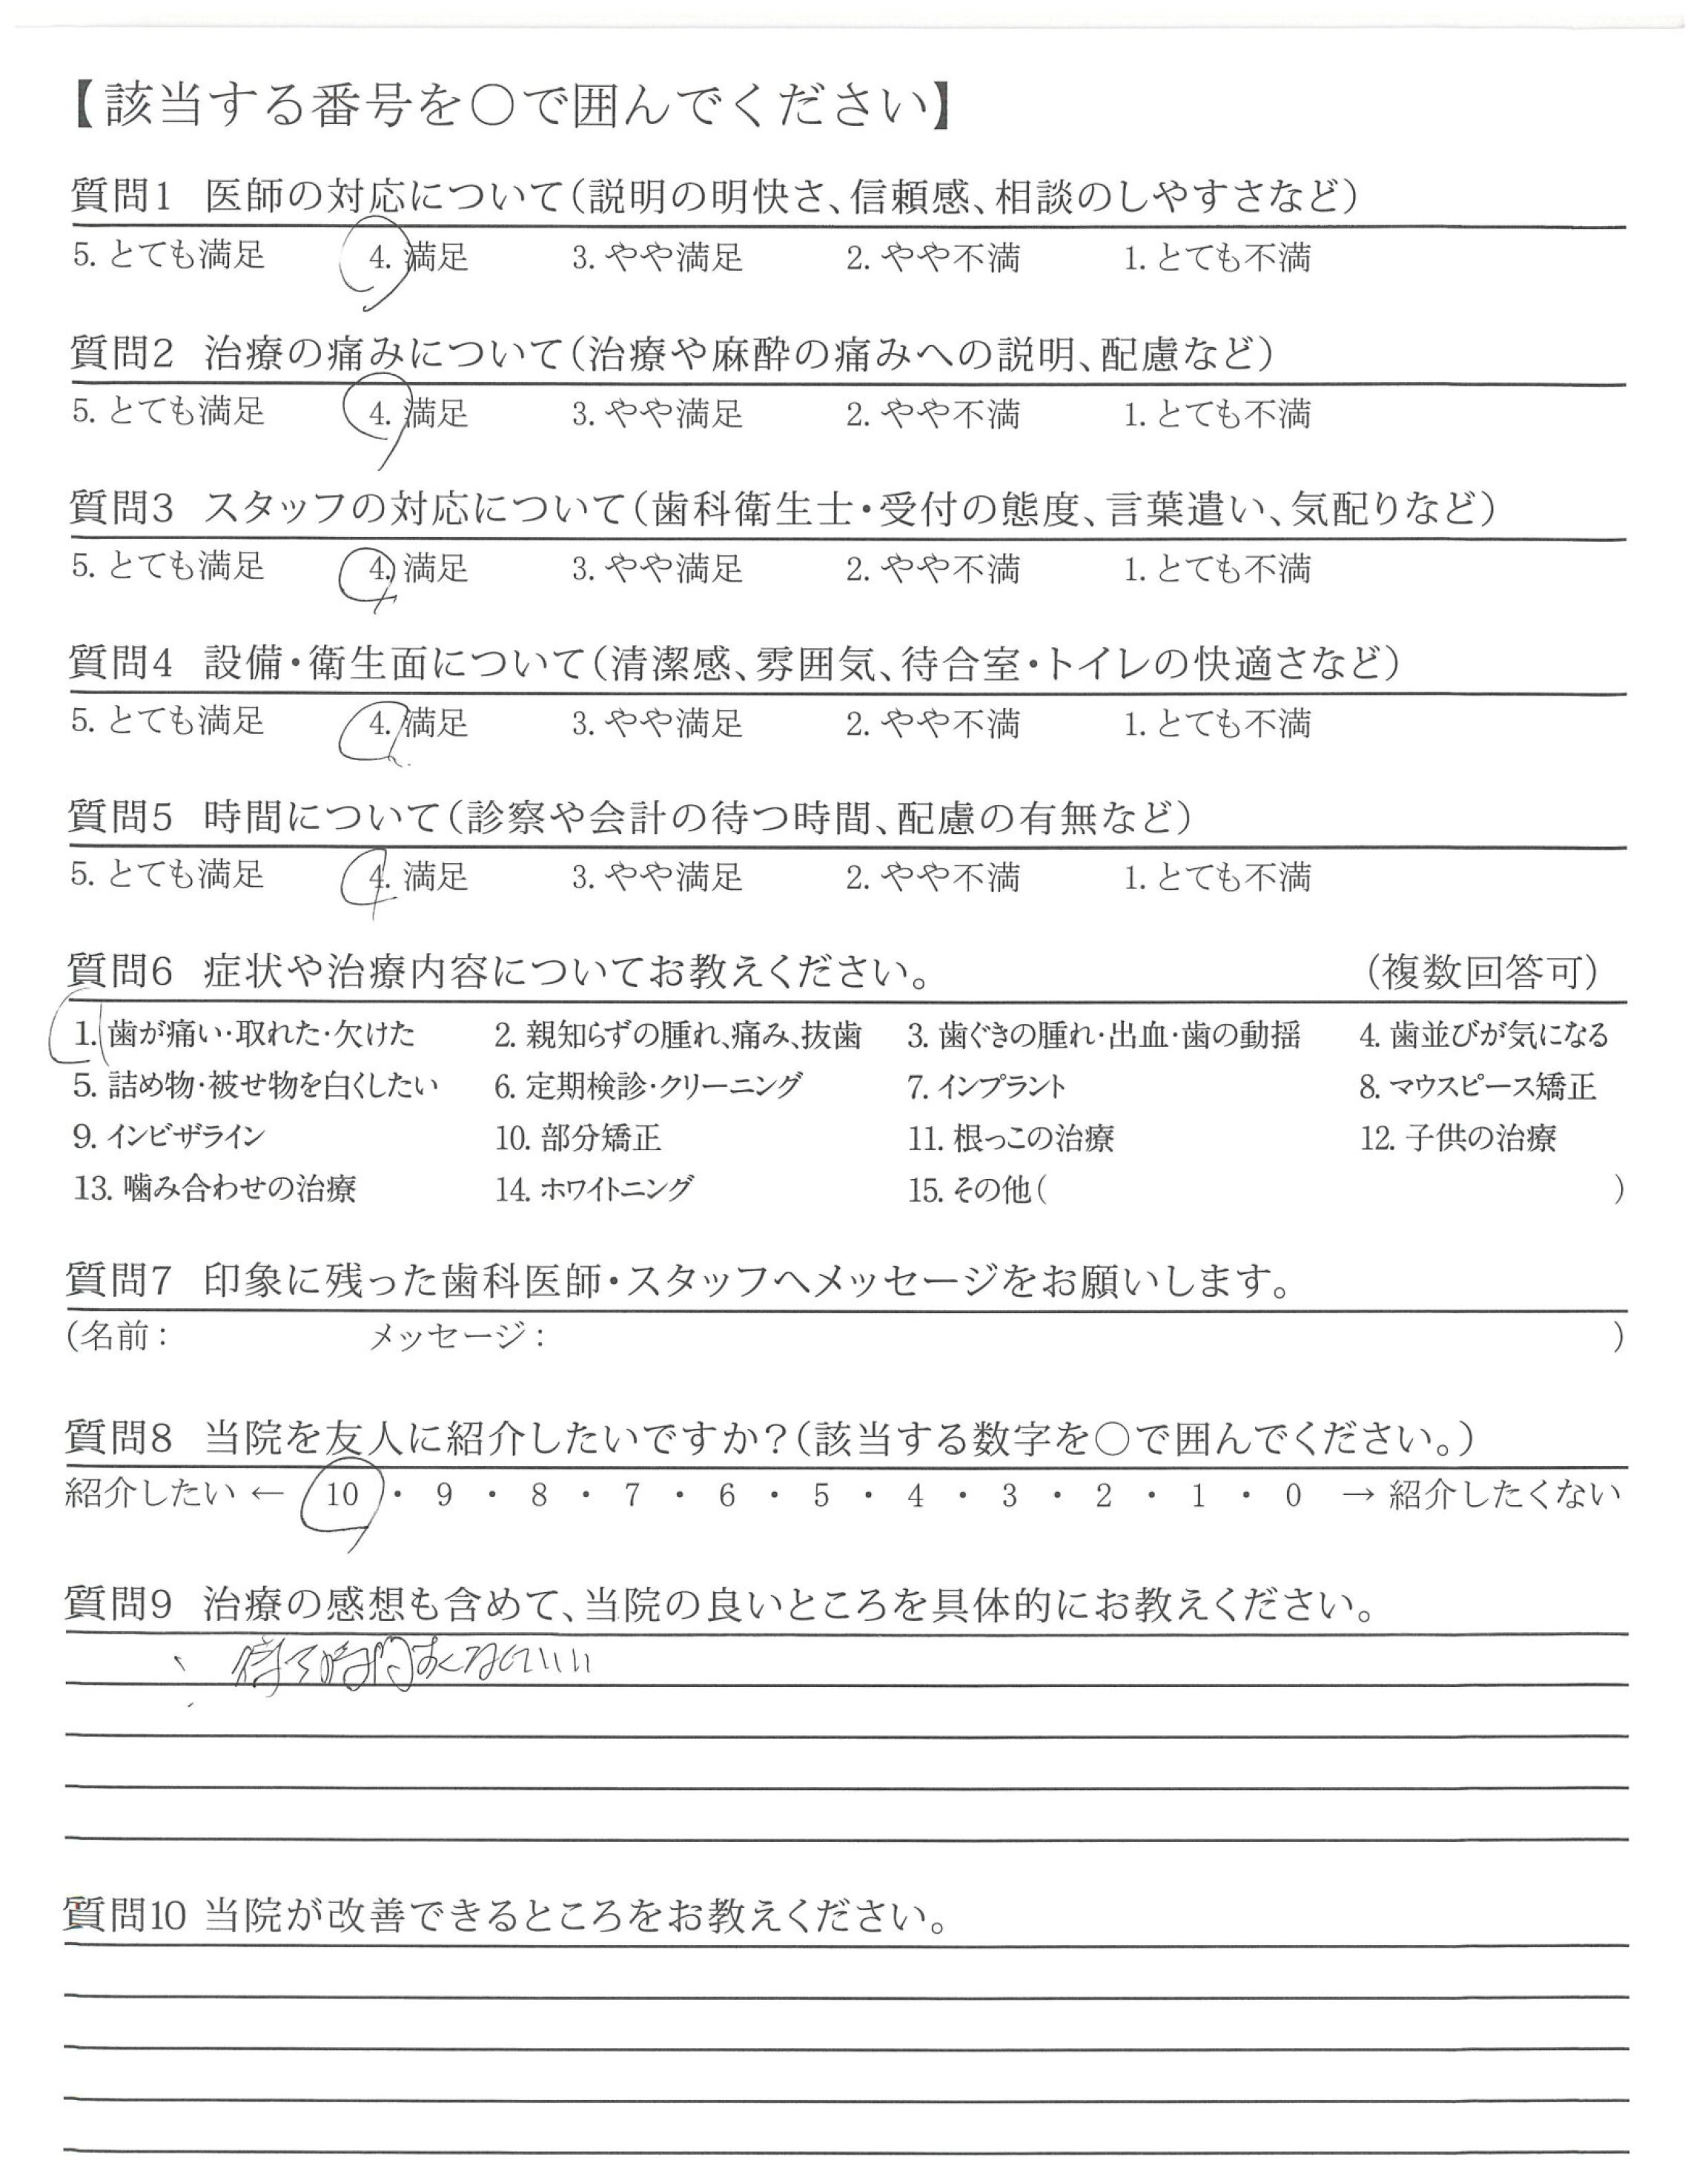 【該当する番号を〇で囲んでください】
質問1 医師の対応について(説明の明快さ、信頼感、相談のしやすさなど)
5. とても満足 4. 満足 3. やや満足 2. やや不満 1. とても不満
質問2 治療の痛みについて(治療や麻酔の痛みへの説明、配慮など)
5. とても満足 4. 満足 3. やや満足 2. やや不満 1. とても不満
質問3 スタッフの対応について(歯科衛生士・受付の態度、言葉遣い、気配りなど)
5. とても満足 4. 満足 3. やや満足 2. やや不満 1. とても不満
質問4 設備・衛生面について(清潔感、雰囲気、待合室・トイレの快適さなど)
5. とても満足 4. 満足 3. やや満足 2. やや不満 1. とても不満
質問5 時間について(診察や会計の待つ時間、配慮の有無など)
5. とても満足 4. 満足 3. やや満足 2. やや不満 1. とても不満
質問6 症状や治療内容についてお教えください。 (複数回答可)
1. 歯が痛い・取れた・欠けた 2. 親知らずの腫れ、痛み、抜歯 3. 歯ぐきの腫れ・出血・歯の動揺 4. 歯並びが気になる
5. 詰め物・被せ物を白くしたい 6. 定期検診・クリーニング 7. インプラント 8. マウスピース矯正
9. インビザライン 10. 部分矯正 11. 根っこの治療 12. 子供の治療
13. 噛み合わせの治療 14. ホワイトニング 15. その他( )
質問7 印象に残った歯科医師・スタッフへメッセージをお願いします。
(名前: メッセージ: )
質問8 当院を友人に紹介したいですか?(該当する数字を〇で囲んでください。)
紹介したい ← 10 ・ 9 ・ 8 ・ 7 ・ 6 ・ 5 ・ 4 ・ 3 ・ 2 ・ 1 ・ 0 → 紹介したくない
質問9 治療の感想も含めて、当院の良いところを具体的にお教えください。
待つ時間
質問10 当院が改善できるところをお教えください。